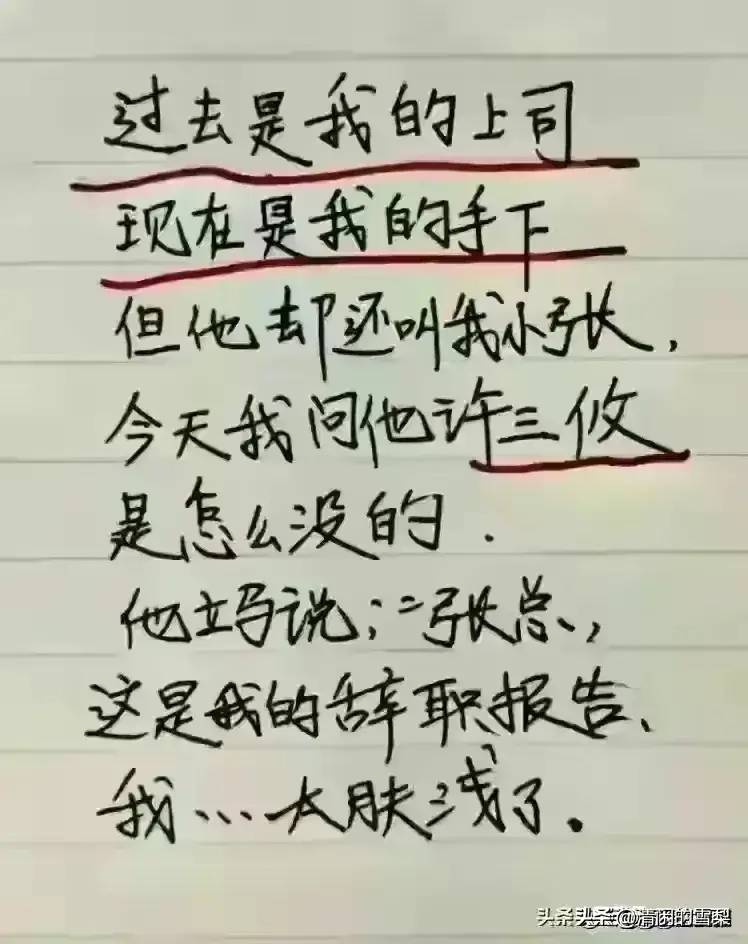 过去是我的上司
现在是我的手下
但他却还叫我小张，
今天我问他许三攸
是怎么没的．
他立马说："张总，
这是我的辞职报告、
我…太肤浅了。
头条 @清闲的雪梨